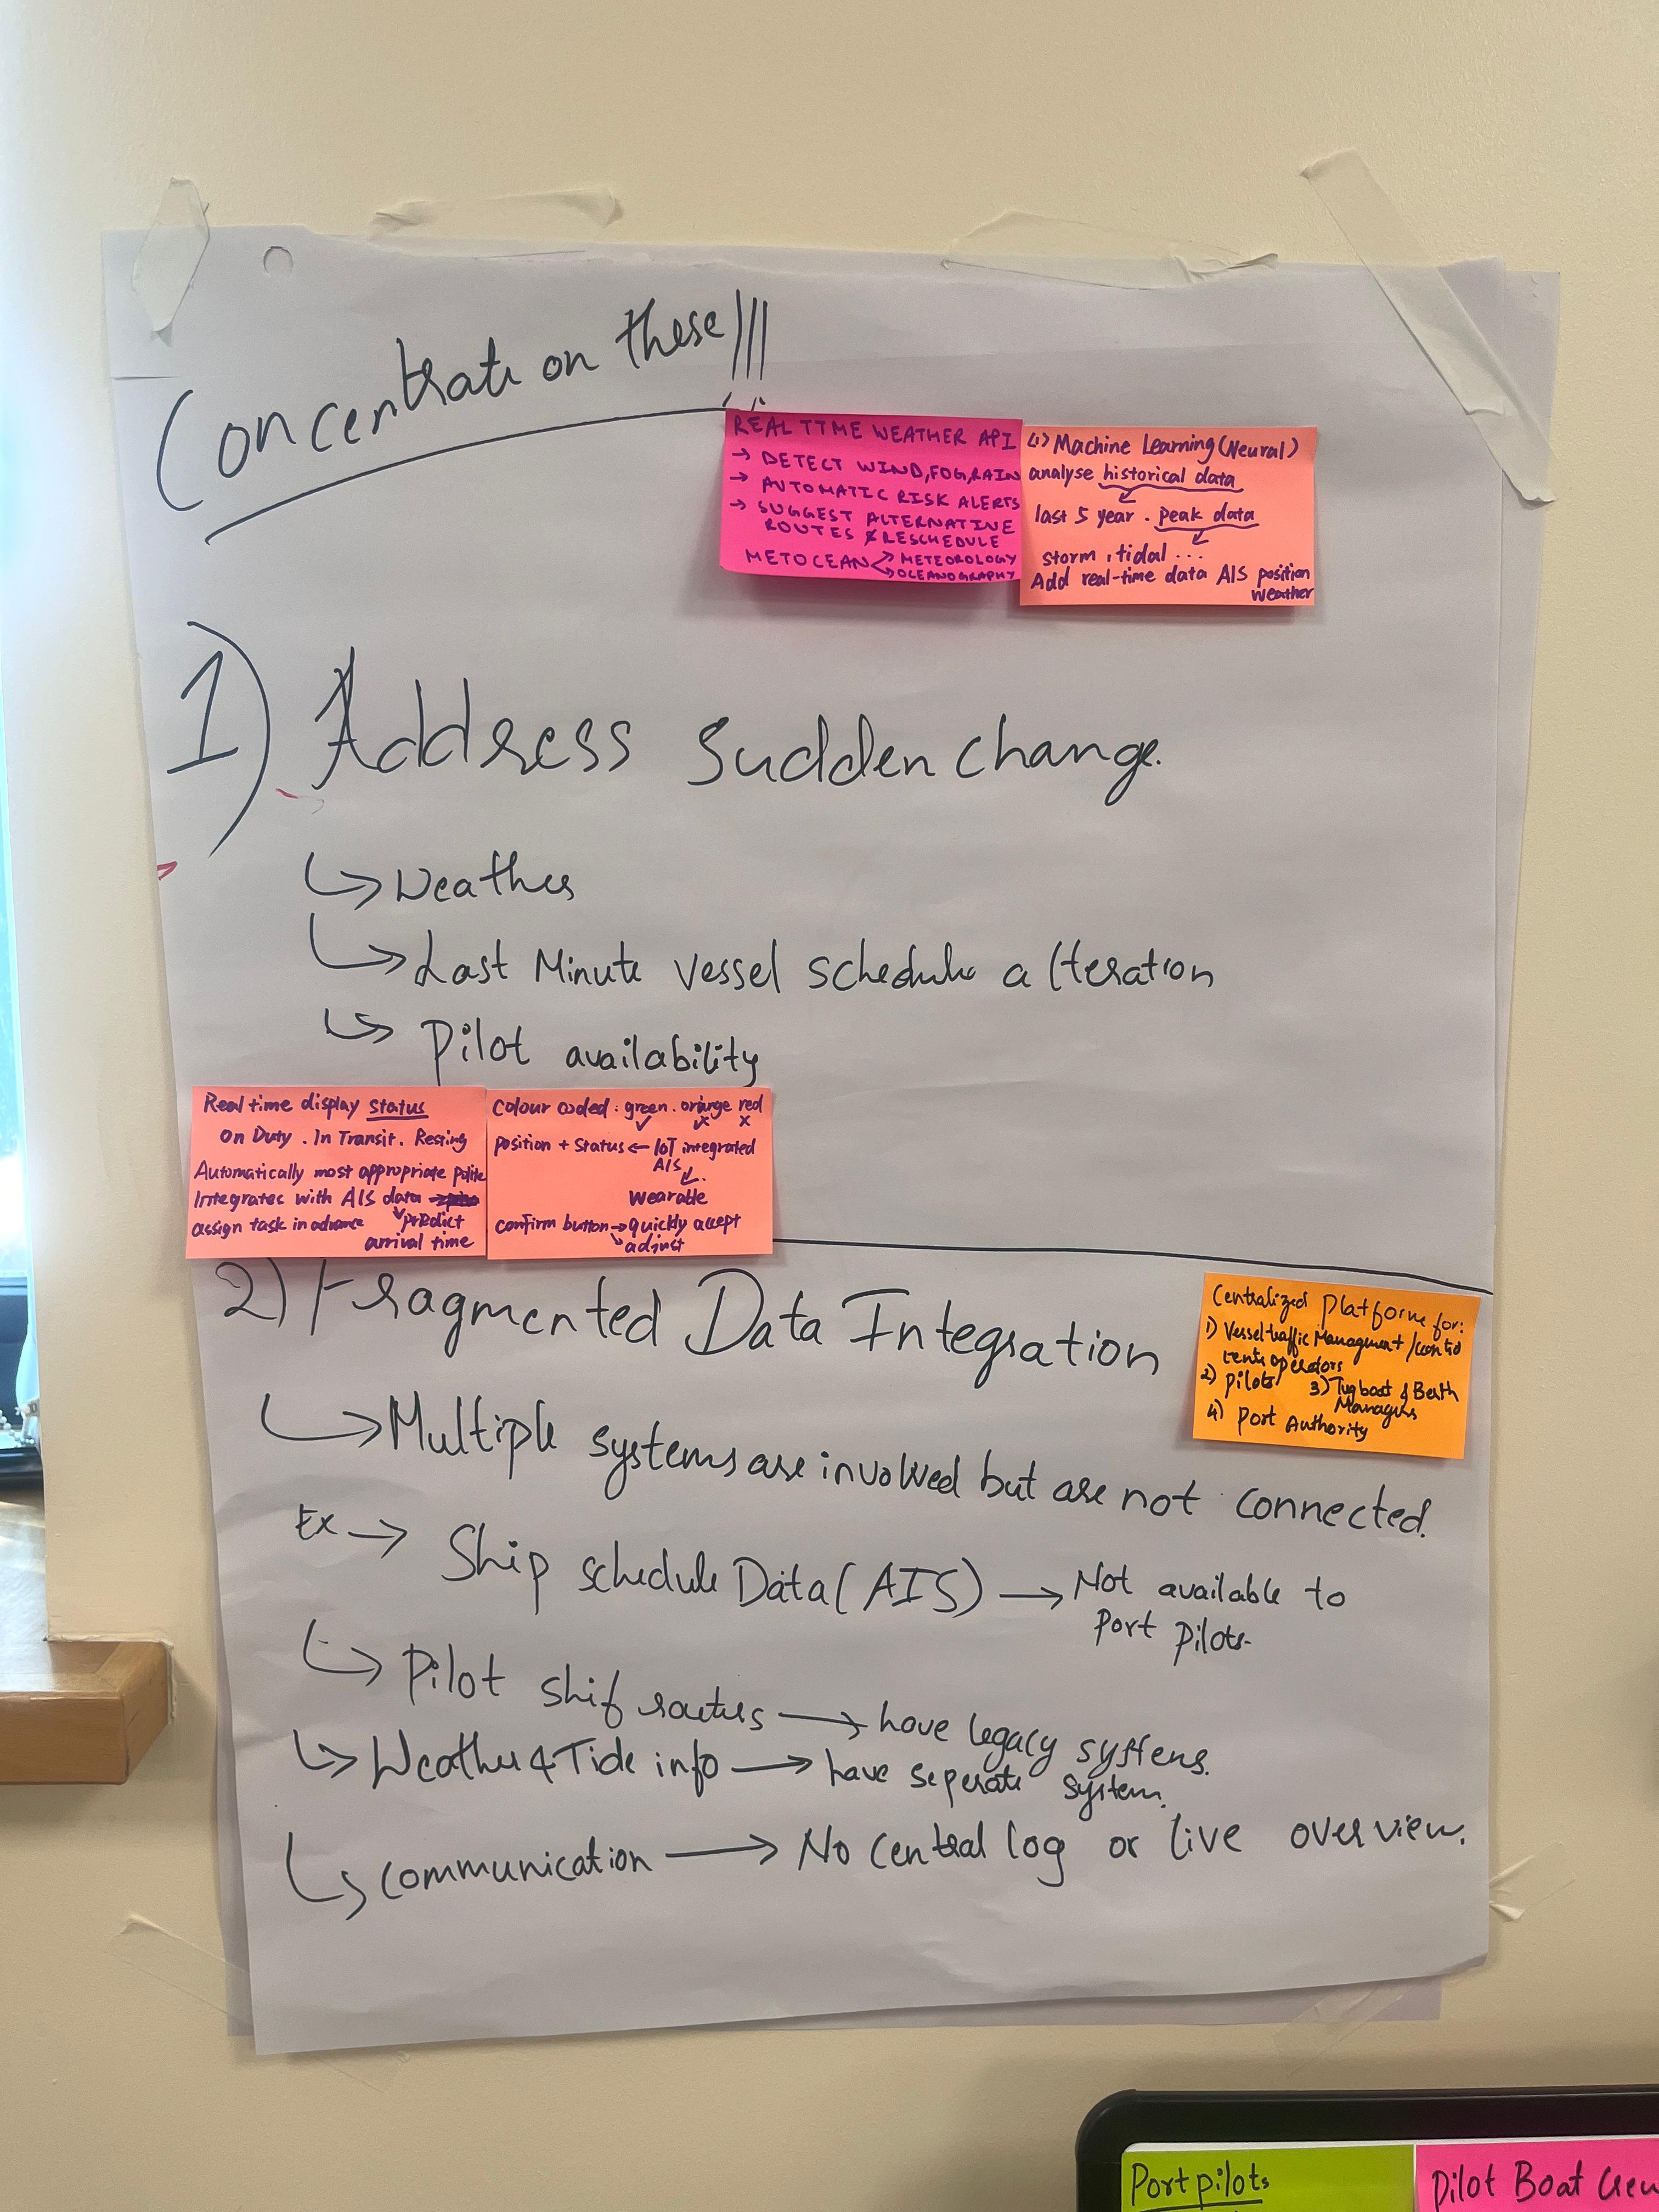 Concentrate on these!!!
REAL TIME WEATHER API
→ DETECT WIND, FOG, RAIN
→ AUTOMATIC RISK ALERTS
→ SUGGEST ALTERNATIVE
ROUTES & RESCHEDULE
METOCEAN → METEOROLOGY
→ OCEANOGRAPHY
Machine Learning (Neural)
analyse historical data
last 5 year . peak data
storm , tidal ...
Add real-time data AIS position
weather
1) Address sudden change.
↳ Weather
↳ Last Minute vessel schedule alteration
↳ Pilot availability
Real time display status
On Duty . In Transit . Resting
Automatically most appropriate
Integrates with AIS data
assign task in advance predict
arrival time
Colour coded : green . orange red
✓ x x
position + Status ← IoT integrated
AIS
Wearable
confirm button → quickly accept
adjust
2) Fragmented Data Integration
Centralized Platform for:
1) Vessel traffic Managment /
operators
2) pilots 3) Tugboat & Berth
Managers
4) Port Authority
↳ Multiple systems are involved but are not connected.
Ex → Ship schedule Data (AIS) → Not available to
Port pilots.
↳ Pilot shif → have legacy systems.
↳ Weather & Tide info → have seperate system.
↳ communication → No central log or live overview.
Port pilots
Pilot Boat Crew